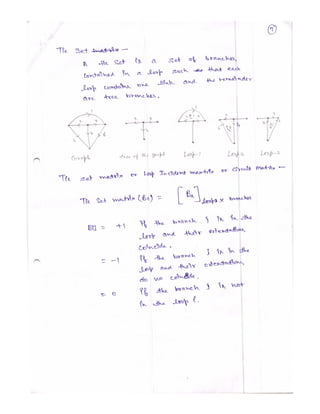 7
Tie Set matrix —
A tie set is a set of branches,
contained in a loop such that each
loop contains one link and the remainder
are tree branches.
Graph tree of the graph Loop-1 Loop-2 Loop-3
Tie set matrix or Loop Incident matrix or circuit matrix —
Tie Set matrix (Ba) = [Ba] loops x branches
= +1 If the branch j is in the
loop and their orientation
coincide.
= -1 If the branch j is in the
loop and their orientation
do no coincide.
= 0 If the branch j is not
in the loop i.